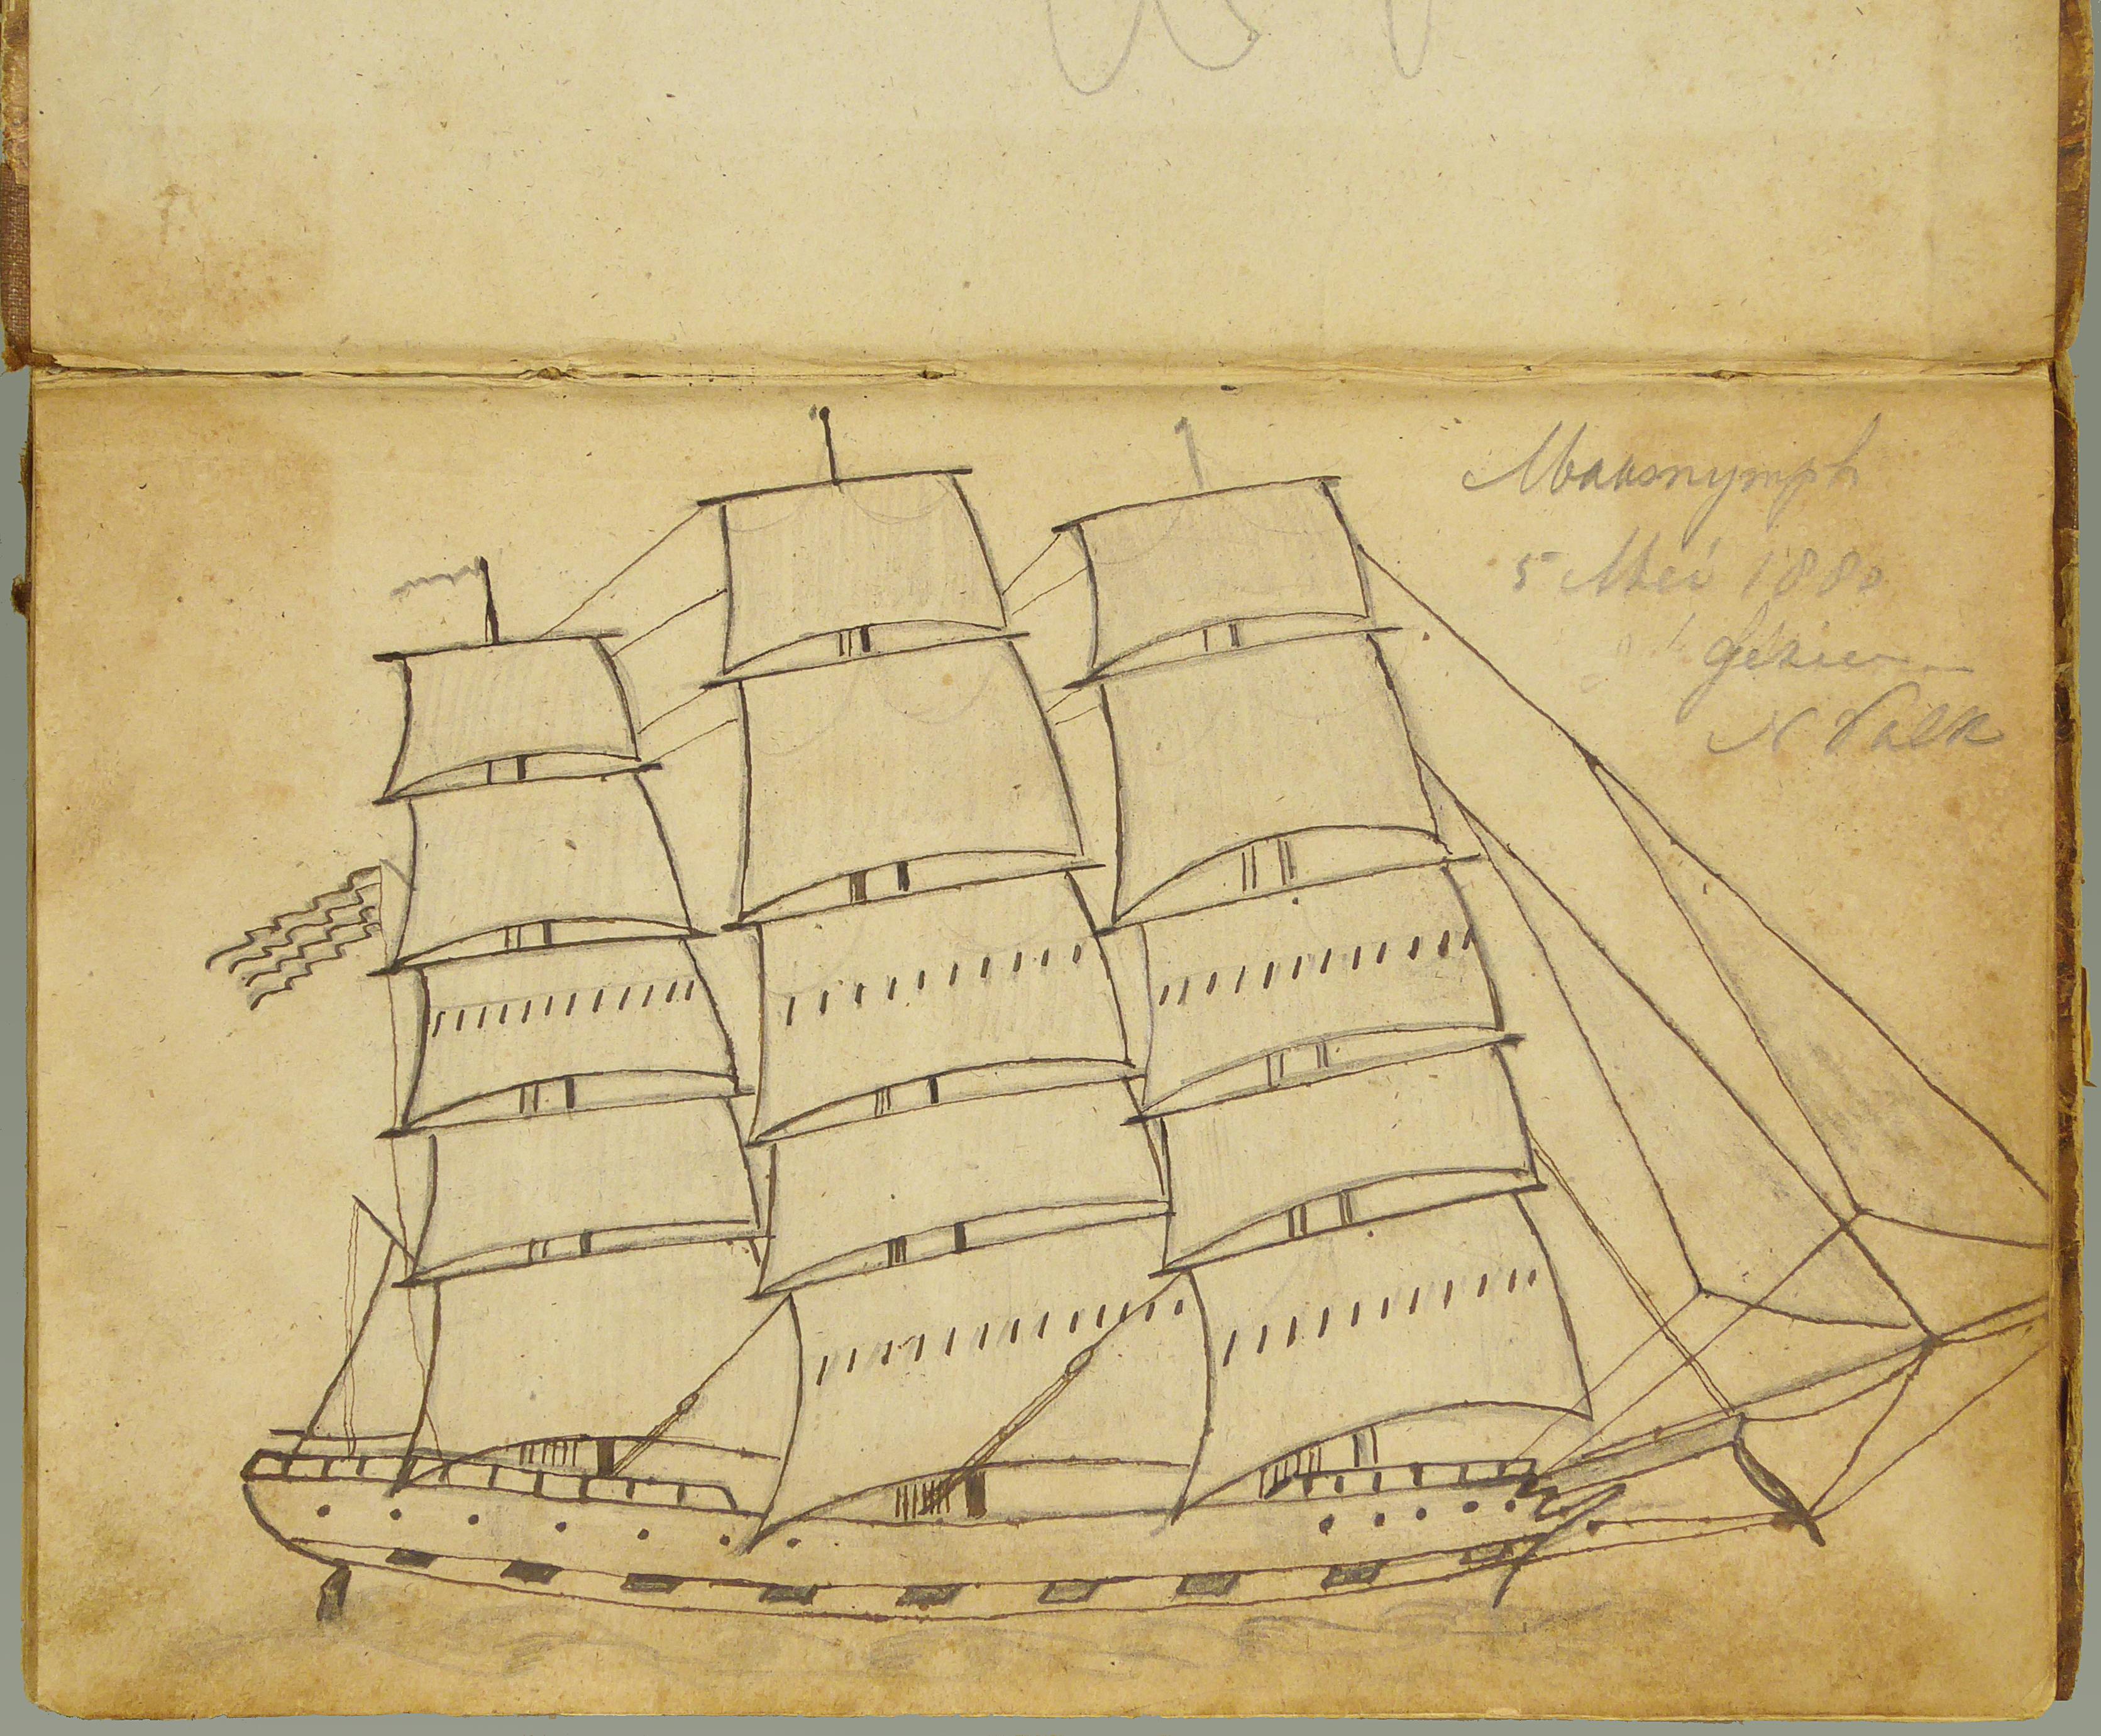 Maasnymph
5 Mei 1880
Gezien
N Valk